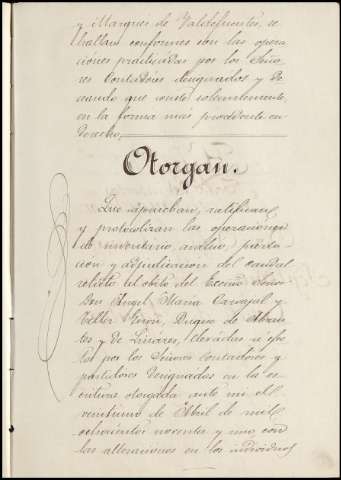 y Marques de Valdefuentes, se
hallan conformes con las opera
ciones practicadas por los Seño
res Contadores designados y de
seando que conste solemnemente
en la forma mas procedente en
derecho,
Otorgan.
Que aprueban, ratifican
y protocolizan las operaciones
de inventario, avaluo, particion
y adjudicacion del caudal
relicto al obito del Excmo Señor
Don Angel Maria Carvajal y
Tellez Giron, Duque de Abran
tes y de Linares, llevadas a efec
to por los Señores Contadores y
partidores designados en la es
critura otorgada ante mi el
veintiuno de Abril de mil
ochocientos noventa y uno, con
las alteraciones en los individuos